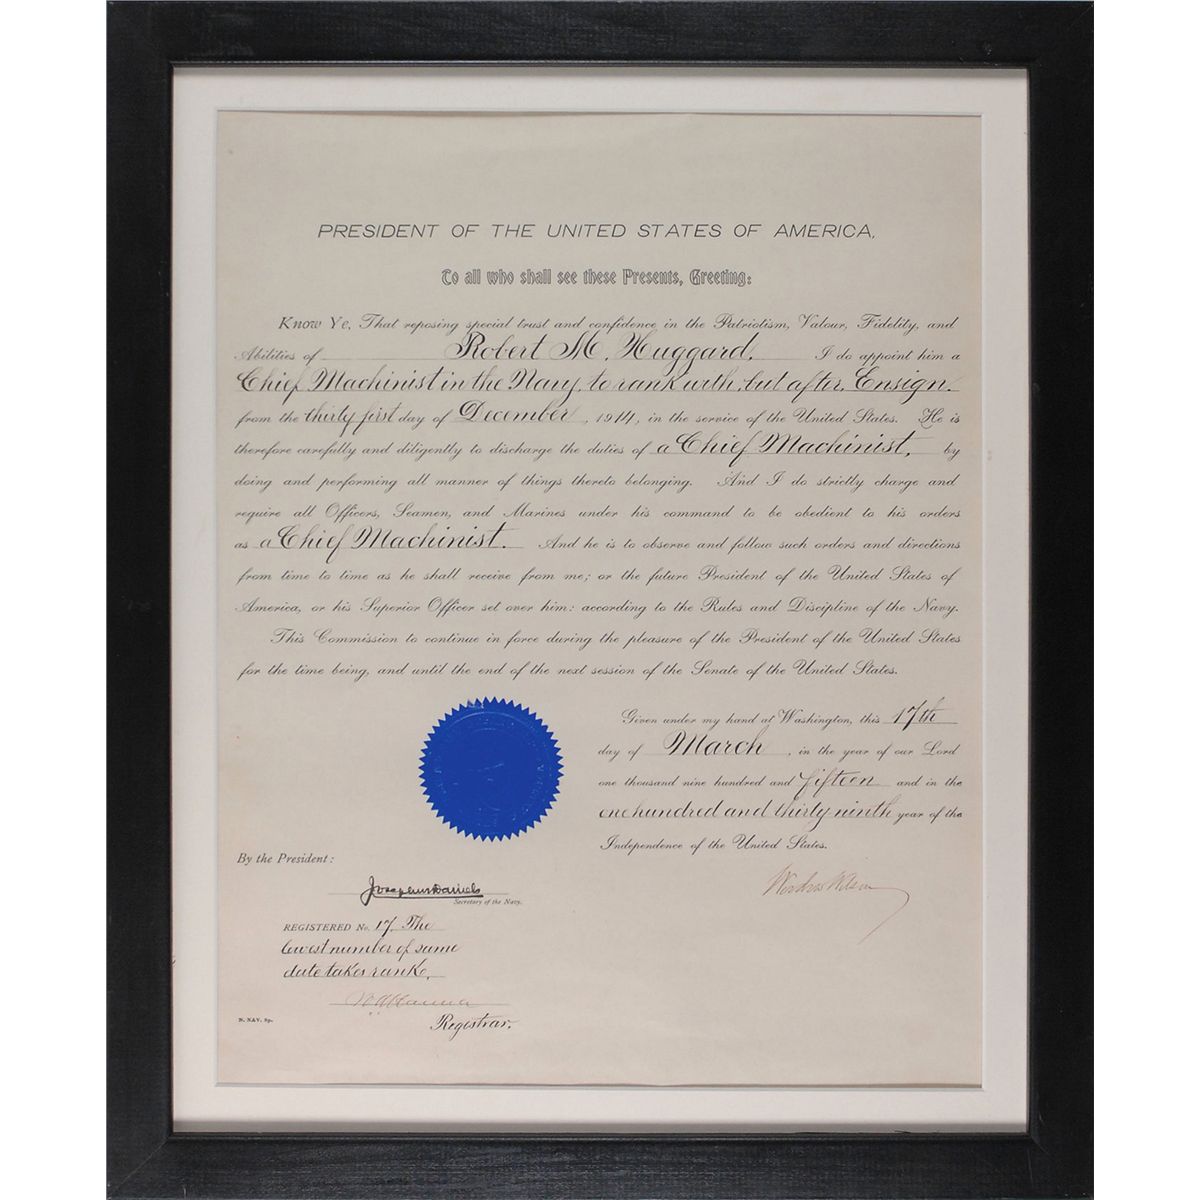 PRESIDENT OF THE UNITED STATES OF AMERICA,
To all who shall see these Presents, Greeting:
Know Ye, That reposing special trust and confidence in the Patriotism, Valour, Fidelity, and
Abilities of Robert M. Huggard, I do appoint him a
Chief Machinist in the Navy, to rank with, but after, Ensign,
from the thirty first day of December, 1914, in the service of the United States. He is
therefore carefully and diligently to discharge the duties of a Chief Machinist, by
doing and performing all manner of things thereto belonging. And I do strictly charge and
require all Officers, Seamen, and Marines under his command to be obedient to his orders
as a Chief Machinist. And he is to observe and follow such orders and directions
from time to time as he shall receive from me; or the future President of the United States of
America, or his Superior Officer set over him: according to the Rules and Discipline of the Navy.
This Commission to continue in force during the pleasure of the President of the United States
for the time being, and until the end of the next session of the Senate of the United States.
Given under my hand at Washington, this 17th
day of March, in the year of our Lord
one thousand nine hundred and fifteen and in the
one hundred and thirty ninth year of the
Independence of the United States.
Woodrow Wilson
By the President:
Josephus Daniels
Secretary of the Navy.
REGISTERED No. 17. The
lowest number of same
date takes rank.
Registrar.
N. NAV. 89.